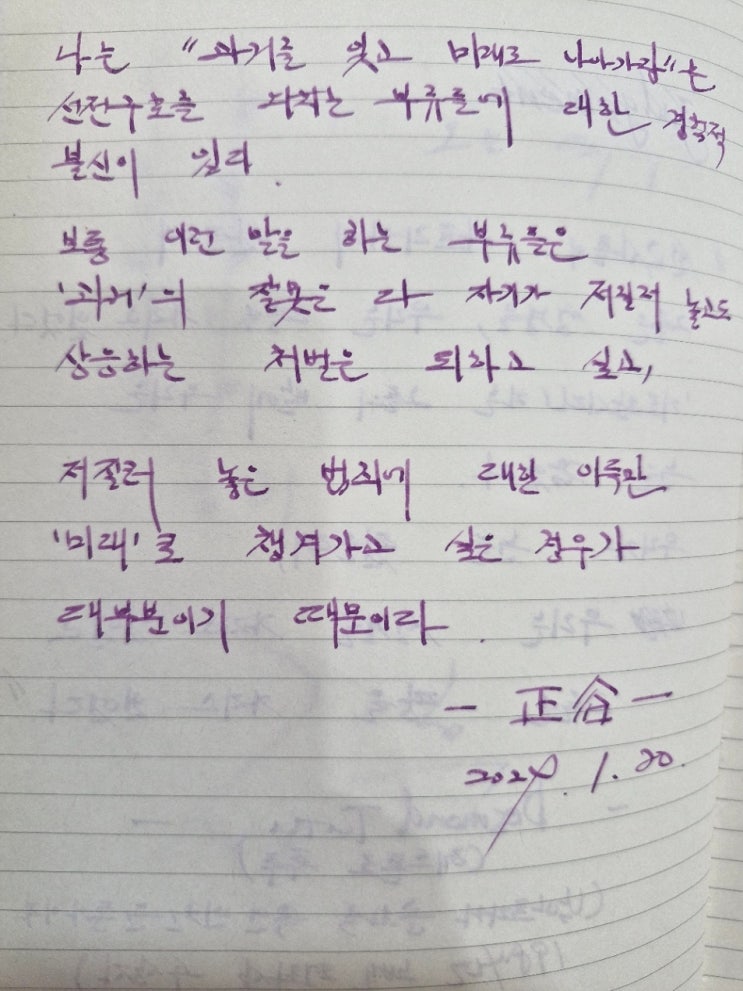 나는 "과거를 잊고 미래로 나아가잔"는
선전구호를 외치는 부류들에 대한 경축적
불신이 있다.
보통 이런 말을 하는 부류들은
'과거'의 잘못은 다 자기가 저질적 놓고도
상응하는 처벌은 피하고 싶고,
저질러 놓은 범죄에 대한 이득만
'미래'로 챙겨가고 싶은 경우가
대부분이기 때문이다.
- 正谷 -
2024. 1. 20.